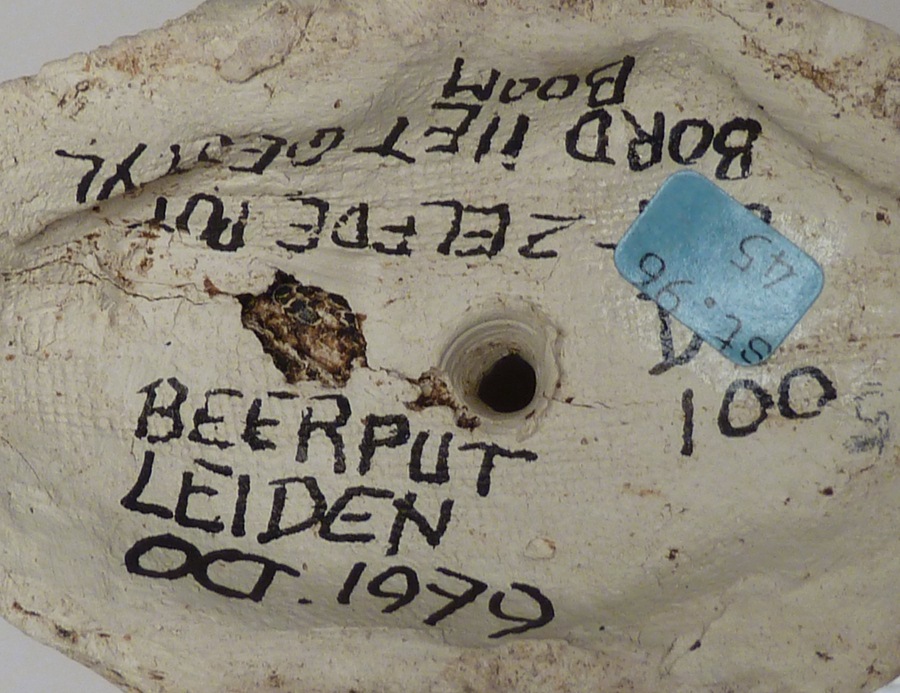 BEERPUT
LEIDEN
OCT. 1979
100
BOOM
BORD MET GESTYL
ZELFDE PUT
45
st. 96